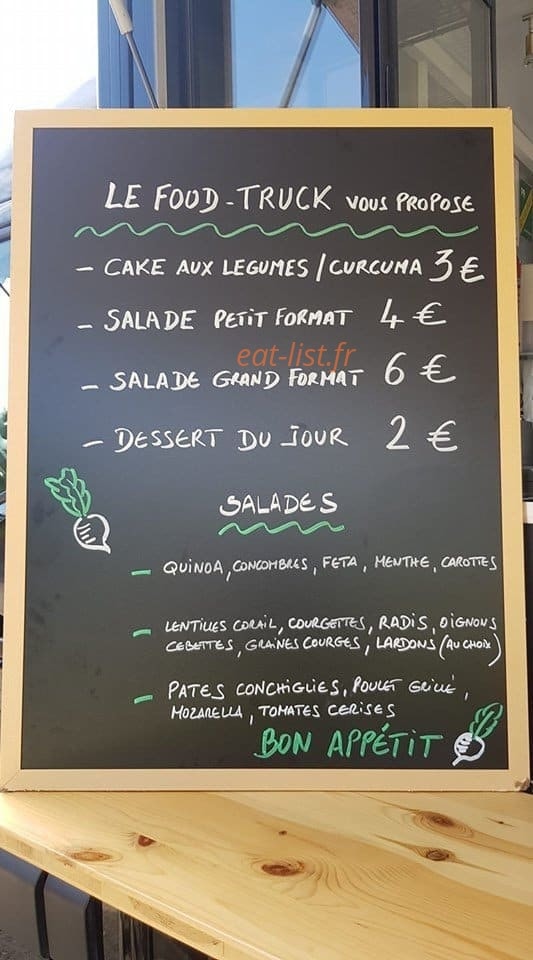 LE FOOD-TRUCK VOUS PROPOSE
- CAKE AUX LEGUMES / CURCUMA 3 €
- SALADE PETIT FORMAT 4 €
eat-list.fr
- SALADE GRAND FORMAT 6 €
- DESSERT DU JOUR 2 €
SALADES
- QUINOA, CONCOMBRES, FETA, MENTHE, CAROTTES
- LENTILLES CORAIL, COURGETTES, RADIS, OIGNONS
CEBETTES, GRAINES COURGES, LARDONS (AU CHOIX)
- PATES CONCHIGLIES, POULET GRILLÉ,
MOZARELLA, TOMATES CERISES
BON APPÉTIT